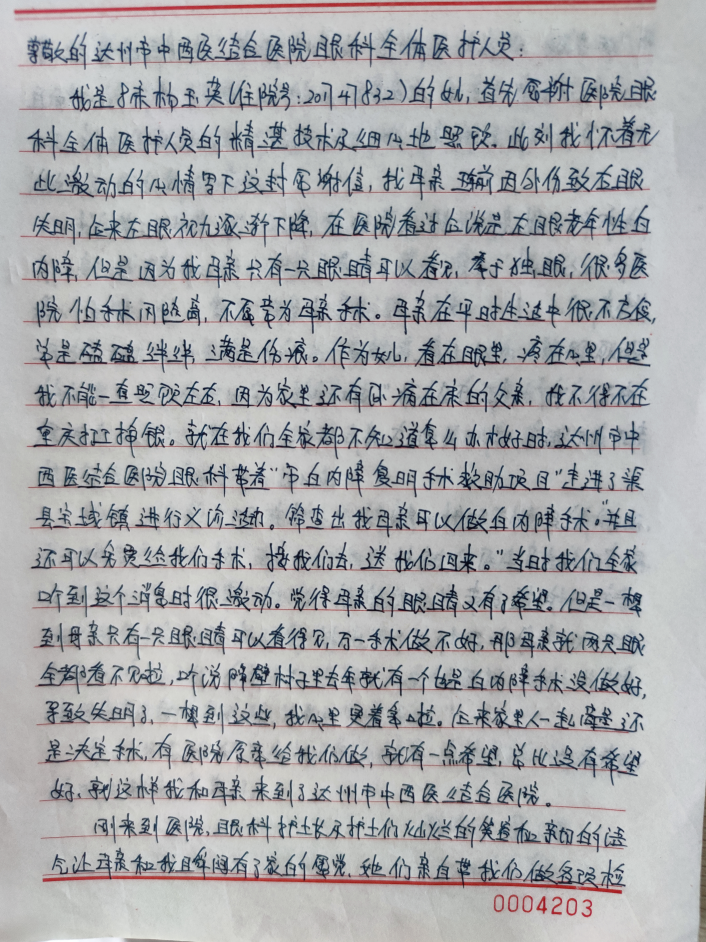 尊敬的达州市中西医结合医院眼科全体医护人员：
我是8床杨玉英(住院号：201747832)的女儿，首先感谢医院眼
科全体医护人员的精湛技术及细心地照顾。此刻我怀着无
比激动的心情写下这封感谢信，我母亲 前因外伤致右眼
失明，后来左眼视力逐渐下降，在医院看过应说是左眼老年性白
内障，但是因为我母亲只有一只眼睛可以看见，属于独眼，很多医
院怕手术风险高，不愿帮为母亲手术。母亲在平时生活中很不方便，
总是磕磕绊绊，满是伤痕。作为女儿，看在眼里，疼在心里，但是
我不能一直照顾左右，因为家里还有卧病在床的父亲，我不得不在
重庆打工挣钱。就在我们全家都不知道怎么办才好时，达州市中
西医结合医院眼科带着“市白内障复明手术救助项目”走进了渠
县 镇进行义诊活动。筛查出我母亲可以做白内障手术。“并且
还可以免费给我们手术，接我们去，送我们回来。”当时我们全家
听到这个消息时很激动。觉得母亲的眼睛又有了希望。但是一想
到母亲只有一只眼睛可以看得见，万一手术做不好，那母亲就两只眼
全都看不见啦，听说隔壁村子里去年就有一个也是白内障手术没做好，
导致失明了，一想到这些，我心里更着急啦。后来家里人一起商量还
是决定手术，有医院愿意给我们做，就有一点希望，总比没有希望
好，就这样我和母亲来到了达州市中西医结合医院。
刚来到医院，眼科护士长及护士们灿烂的笑容和亲切的语
气让母亲和我瞬间有了家的感觉，她们亲自带我们做各项检
0004203